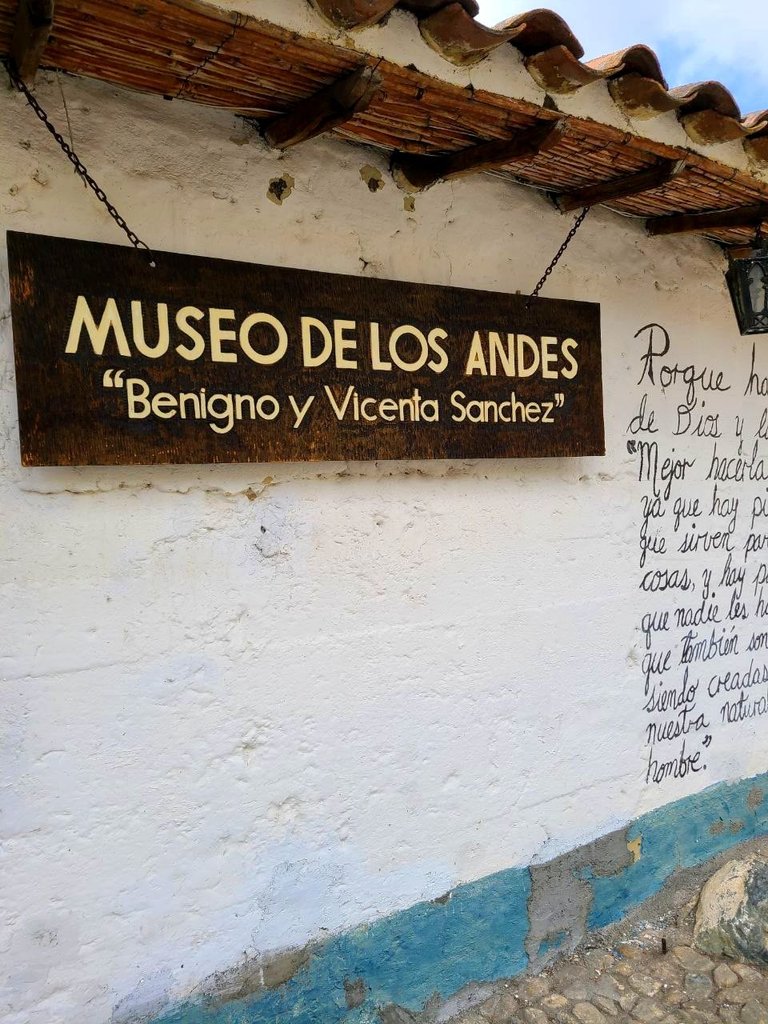 MUSEO DE LOS ANDES
“Benigno y Vicenta Sanchez”
Porque
de Dios y
“Mejor hacerla
ya que hay
que sirven
cosas, y hay
que nadie les
que también son
siendo creadas
nuestra
hombre.”